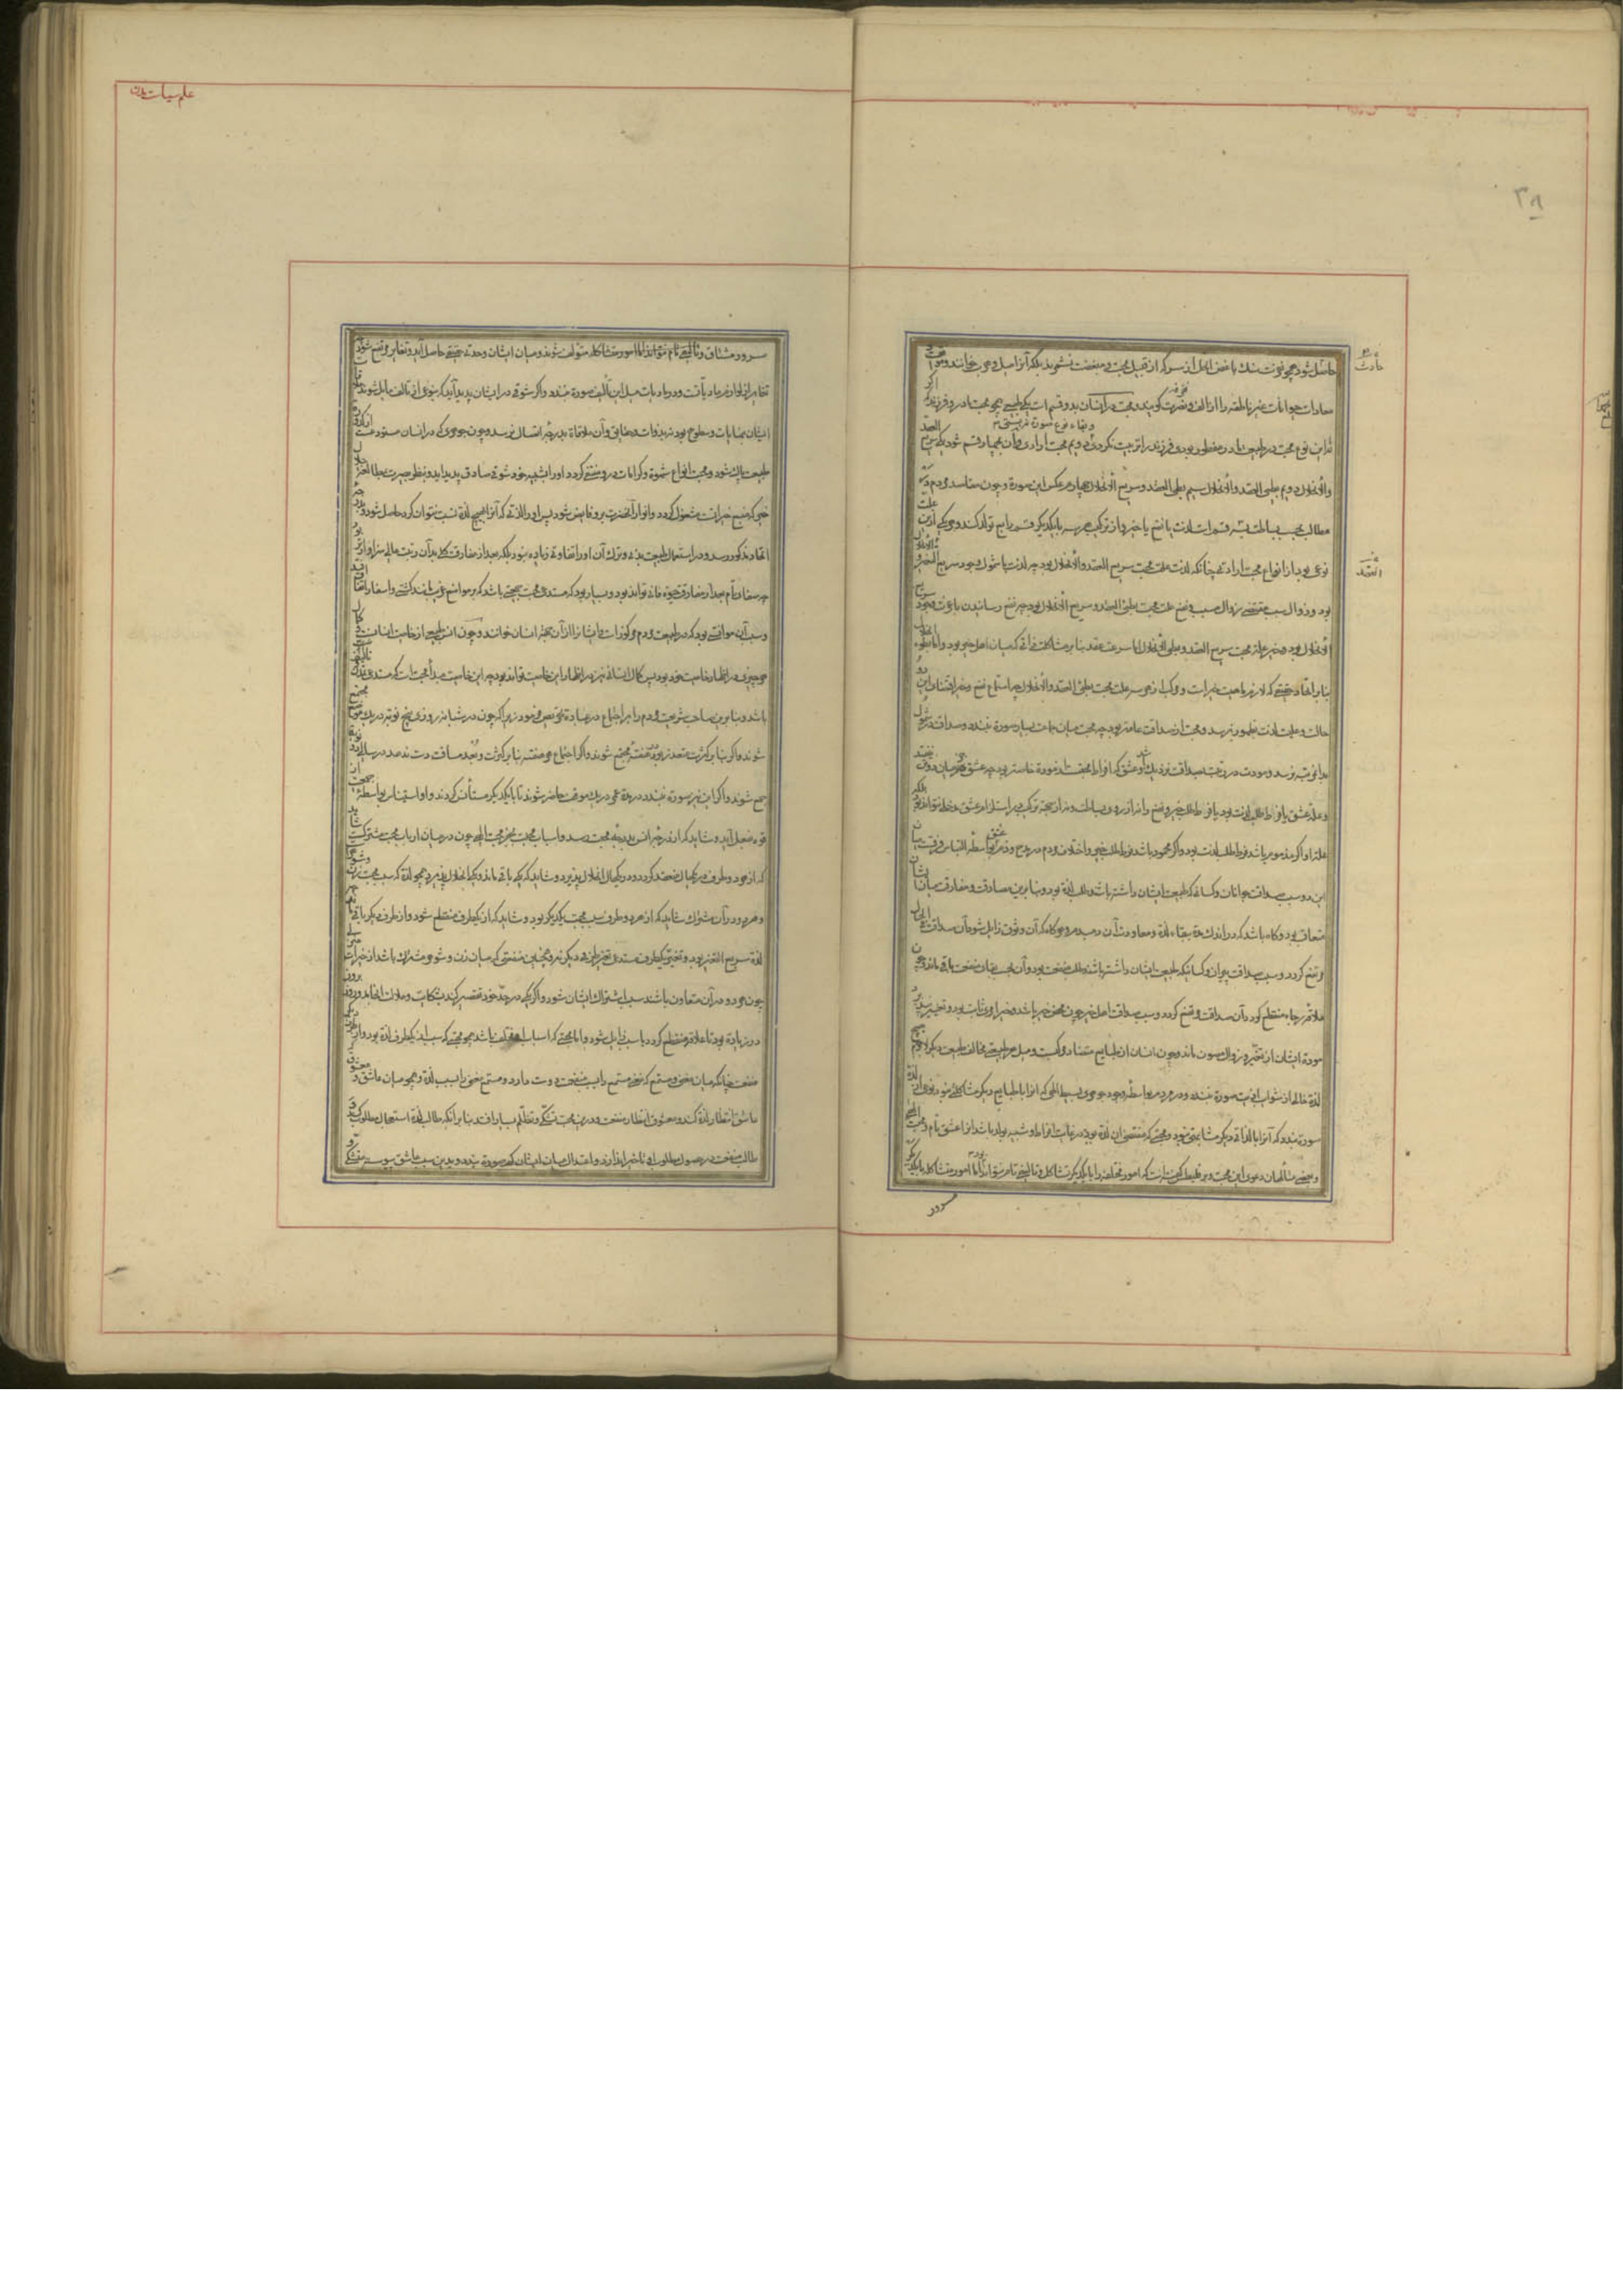 حاصل شود همچو نفرت سنگ باغض الخل از سرکه از قبیل محبت و مبغضت نشمرند بلکه آنرا میل و هرب خوانند و موا
معادات حیوانات غیر ناطقه را الف و نفرت گویند و محبت در انسان بدو قسم است یکی طبیعی همچو محبت مادر و فرزند که اگر
نه این نوع محبت در طبیعت مادر مفطور بودی فرزند را تربیت نکردی و بقاء نوع صورت نبستی دویم محبت ارادی و آن بچهار قسم شود یکی سریع العقد
والانحلال دویم بطیء العقد والانحلال سیم بطیء العقد و سریع الانحلال چهارم عکس این صورة و چون مقاصد مردم در
مطالب بحسب بساطت سه قسم است لذت یا نفع یا خیر و از ترکیب هر سه با یکدیگر قسم رابع تولد کند و هر یکی ازین علت
نوعی بود از انواع محبت ارادی چنانکه لذت علت محبت سریع العقد والانحلال بود چه لذت با شمول وجود سریع التغیر و
بود و زوال سبب مقتضی زوال مسبب و نفع علت محبت بطیء العقد و سریع الانحلال بود چه نفع رسانیدن با عزت وجود سریع
الانحلال بود و خیر علت محبت سریع العقد و بطیء الانحلال اما سرعت عقد بنا بر مشاکلت ذاتی که میان اهل خیر بود و اما بطوء
بنا بر اتحاد حقیقی که لازم ماهیت خیر است و مرکب از هر سه علت محبت بطیء العقد والانحلال چه استجماع نفع و خیر اقتضاء این دو
حالت و علیت لذت بظهور نرسد و محبت از صداقت عامتر بود چه محبت میان جماعت بسیار صورة بندد و صداقت در شمول
بدین مرتبه نرسد و مودت در رتبت بصداقت نزدیک باشد و عشق که افراط محبتست از مودة خاصتر بود چه عشق جز میان دو تن نیفتد
و علت عشق یا فرط طلب لذت بود یا فرط طلب خیر و نفع را نه از روی بساطت و نه از جهت ترکیب در استلزام عشق مدخل نتواند بود
علت او اگر مذموم باشد فرط طلب لذت بود و اگر محمود باشد فرط طلب خیر و اختلاف مردم در مدح و ذم عشق بواسطه التباس فرقست میان
این دو سبب صداقت جوانان و کسانیکه طبیعت ایشان داشته باشند طلب لذة بود و بنا برین مصادقت و مفارقت میان ایشان
متعاقب بود و گاه باشد که در اندک مدة بقاء لذة و معاودت آن
مرتفع گردد و سبب صداقت پیران و کسانیکه طبیعت ایشان داشته باشند طلب منفعت بود و آن بحسب ... منفعت باقی ماند و چون
علاقه رجا منقطع گردد آن صداقت مرتفع گردد و سبب صداقت اهل خیر چون محض خیر باشد و خیر امری ثابت بود و تغیر نپذیرد
مودة ایشان از تغیر و زوال مصون ماند و چون انسان از طبایع متضاد مرکبست و میل هر طبیعتی مخالف طبیعت دیگر
لذة خالص از شوایب اذیت صورة نبندد و در مردم بواسطه وجود جوهری بسیط الهی که آنرا با طبایع دیگر مشاکلتی نبود نوعی از لذة
صورت بندد که آنرا با لذات دیگر مشابهتی نبود و محبتی که مقتضی آن لذة بود در غایت افراط و شبیه بوله باشد آنرا عشق تام و محبت الهی
و بعضی متألهان دعوی این محبت
سرور
سرور مشتاق و تألیفی تام نتواند اما امور متشاکله متولف شوند و میان ایشان وحدتی حقیقی حاصل آید و تغایر مرتفع شود
تغایر از لوازم مادیاتست و در مادیات مثل این تألیف صورة نبندد و اگر شوقی در ایشان پدید آید که بنوعی از تألف مایل شوند ملاقات
ایشان بنهایات و سطوح بود نه بذوات و حقایق و آن ملاقاة بدرجه اتصال نرسد و چون جوهری که در انسان مستودعست از کدورت
طبیعت پاک شود و محبت انواع شهوة و کرامات در و منتفی گردد او را بشبیه خود شوقی صادق پدید آید و بنظر بصیرت بمطالعه جلال
خیر که منبع خیراتست مشغول گردد و انوار آن حضرت برو فایض شود پس او را لذتی که آنرا بهیچ لذة نسبت نتوان کرد حاصل شود و بدرجه
اتحاد مذکور رسد و در استعمال طبیعت بدنی و ترک آن او را تفاوتی زیاده نبود بلکه بعد از مفارقت کلی بدان رتبت عالی سزاوارتر بود
چه صفاء تام بعد از مفارقت حیوة فانی تواند بود
و سبب آن موانستی بود که در طبیعت مردم مرکوزست و ایشانرا از آن جهت انسان خوانند و چون انس طبیعی از خاصیت انسانست و کمال
هر چیزی در اظهار خاصیت خود بود پس کمال انسانی نیز در اظهار این خاصیت تواند بود چه این خاصیت مبدأ محبت است که مستدعی تمدن
باشد و بنا برین صاحب شریعت مردم را بر اجتماع در عبادة تحریص فرمود زیرا که چون در شبانه روزی پنج نوبت در یک موضع مجتمع
شوند و اگر بنا بر کثرت متعذر بود هر هفته مجتمع شوند و اگر اجتماع هر هفته بنا بر کثرت و بعد مسافت دست ندهد در سالی دو نوبت
جمع شوند و اگر این نیز صورة نبندد در مدة عمر در یک موقف حاضر شوند تا با یکدیگر مستأنس گردند و از استیناس بواسطه جمعیت
قوة بفعل آید و شاید که از درجه انس بدرجه محبت رسد و اسباب محبت بغیر محبت الهی چون در میان ارباب محبت مشترکست شاید
که از هر دو طرف در یکحال منعقد گردد و در یکحال انحلال پذیرد و شاید که یکی باقی ماند و یکی انحلال پذیرد همچو لذة که سبب محبت زن و شوهر
و هر دو در آن مشترک شاید که از هر دو طرف سبب محبت یکدیگر بود و شاید که از یکطرف منقطع شود و از طرف دیگر باقی ماند
لذة سریع التغیر بود و تغیر یکطرف مستدعی تغیر طرف دیگر نه و همچنین منفعتی که میان زن و شوهر مشترک باشد از خیرات منزلی
چون هر دو در آن متعاون باشند سبب اشتراک ایشان شود و اگر یکی در حد خود تقصیر کند بشکایت و ملامت انجامد و روز بروز
در زیادة بود تا علاقه منقطع گردد یا سبب زایل شود و اما محبتی که اسباب او مختلف باشد همچو محبتی که سبب از یکطرف لذة بود و از طرف دیگر
منفعت چنانکه میان مغنی و مستمع که مغنی مستمع را بسبب منفعت دوست دارد و مستمع مغنی را بسبب لذة و همچو میان عاشق و معشوق
عاشق انتظار لذة کند و معشوق انتظار منفعت و درین محبت تشکی و تظلم بسیار افتد بنا بر آنکه طالب لذة استعجال مطلوب کند و
طالب منفعت در حصول مطلوب او تاخیر اندازد و اعتدال میان ایشان کم صورة بندد و بدین سبب عاشق پیوسته متشکی